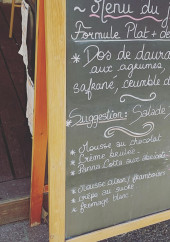 ~ Menu du j
Formule Plat + de
* Dos de daura
aux agrumes,
safrané, crumble d
Suggestion: Salade
* Mousse au chocolat
* Crème brulée
* Panna Cotta aux
* crêpe au sucre
* fromage blanc